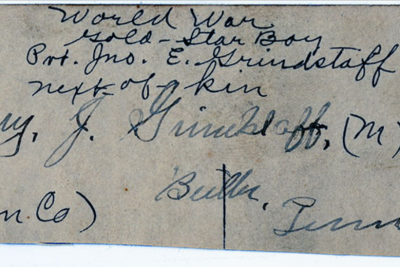 World War
Gold-Star Boy
Pvt. Jno. E. Grindstaff
next of kin
y, J. Grindstaff, (M)
Butler, Tenn
n. Co)